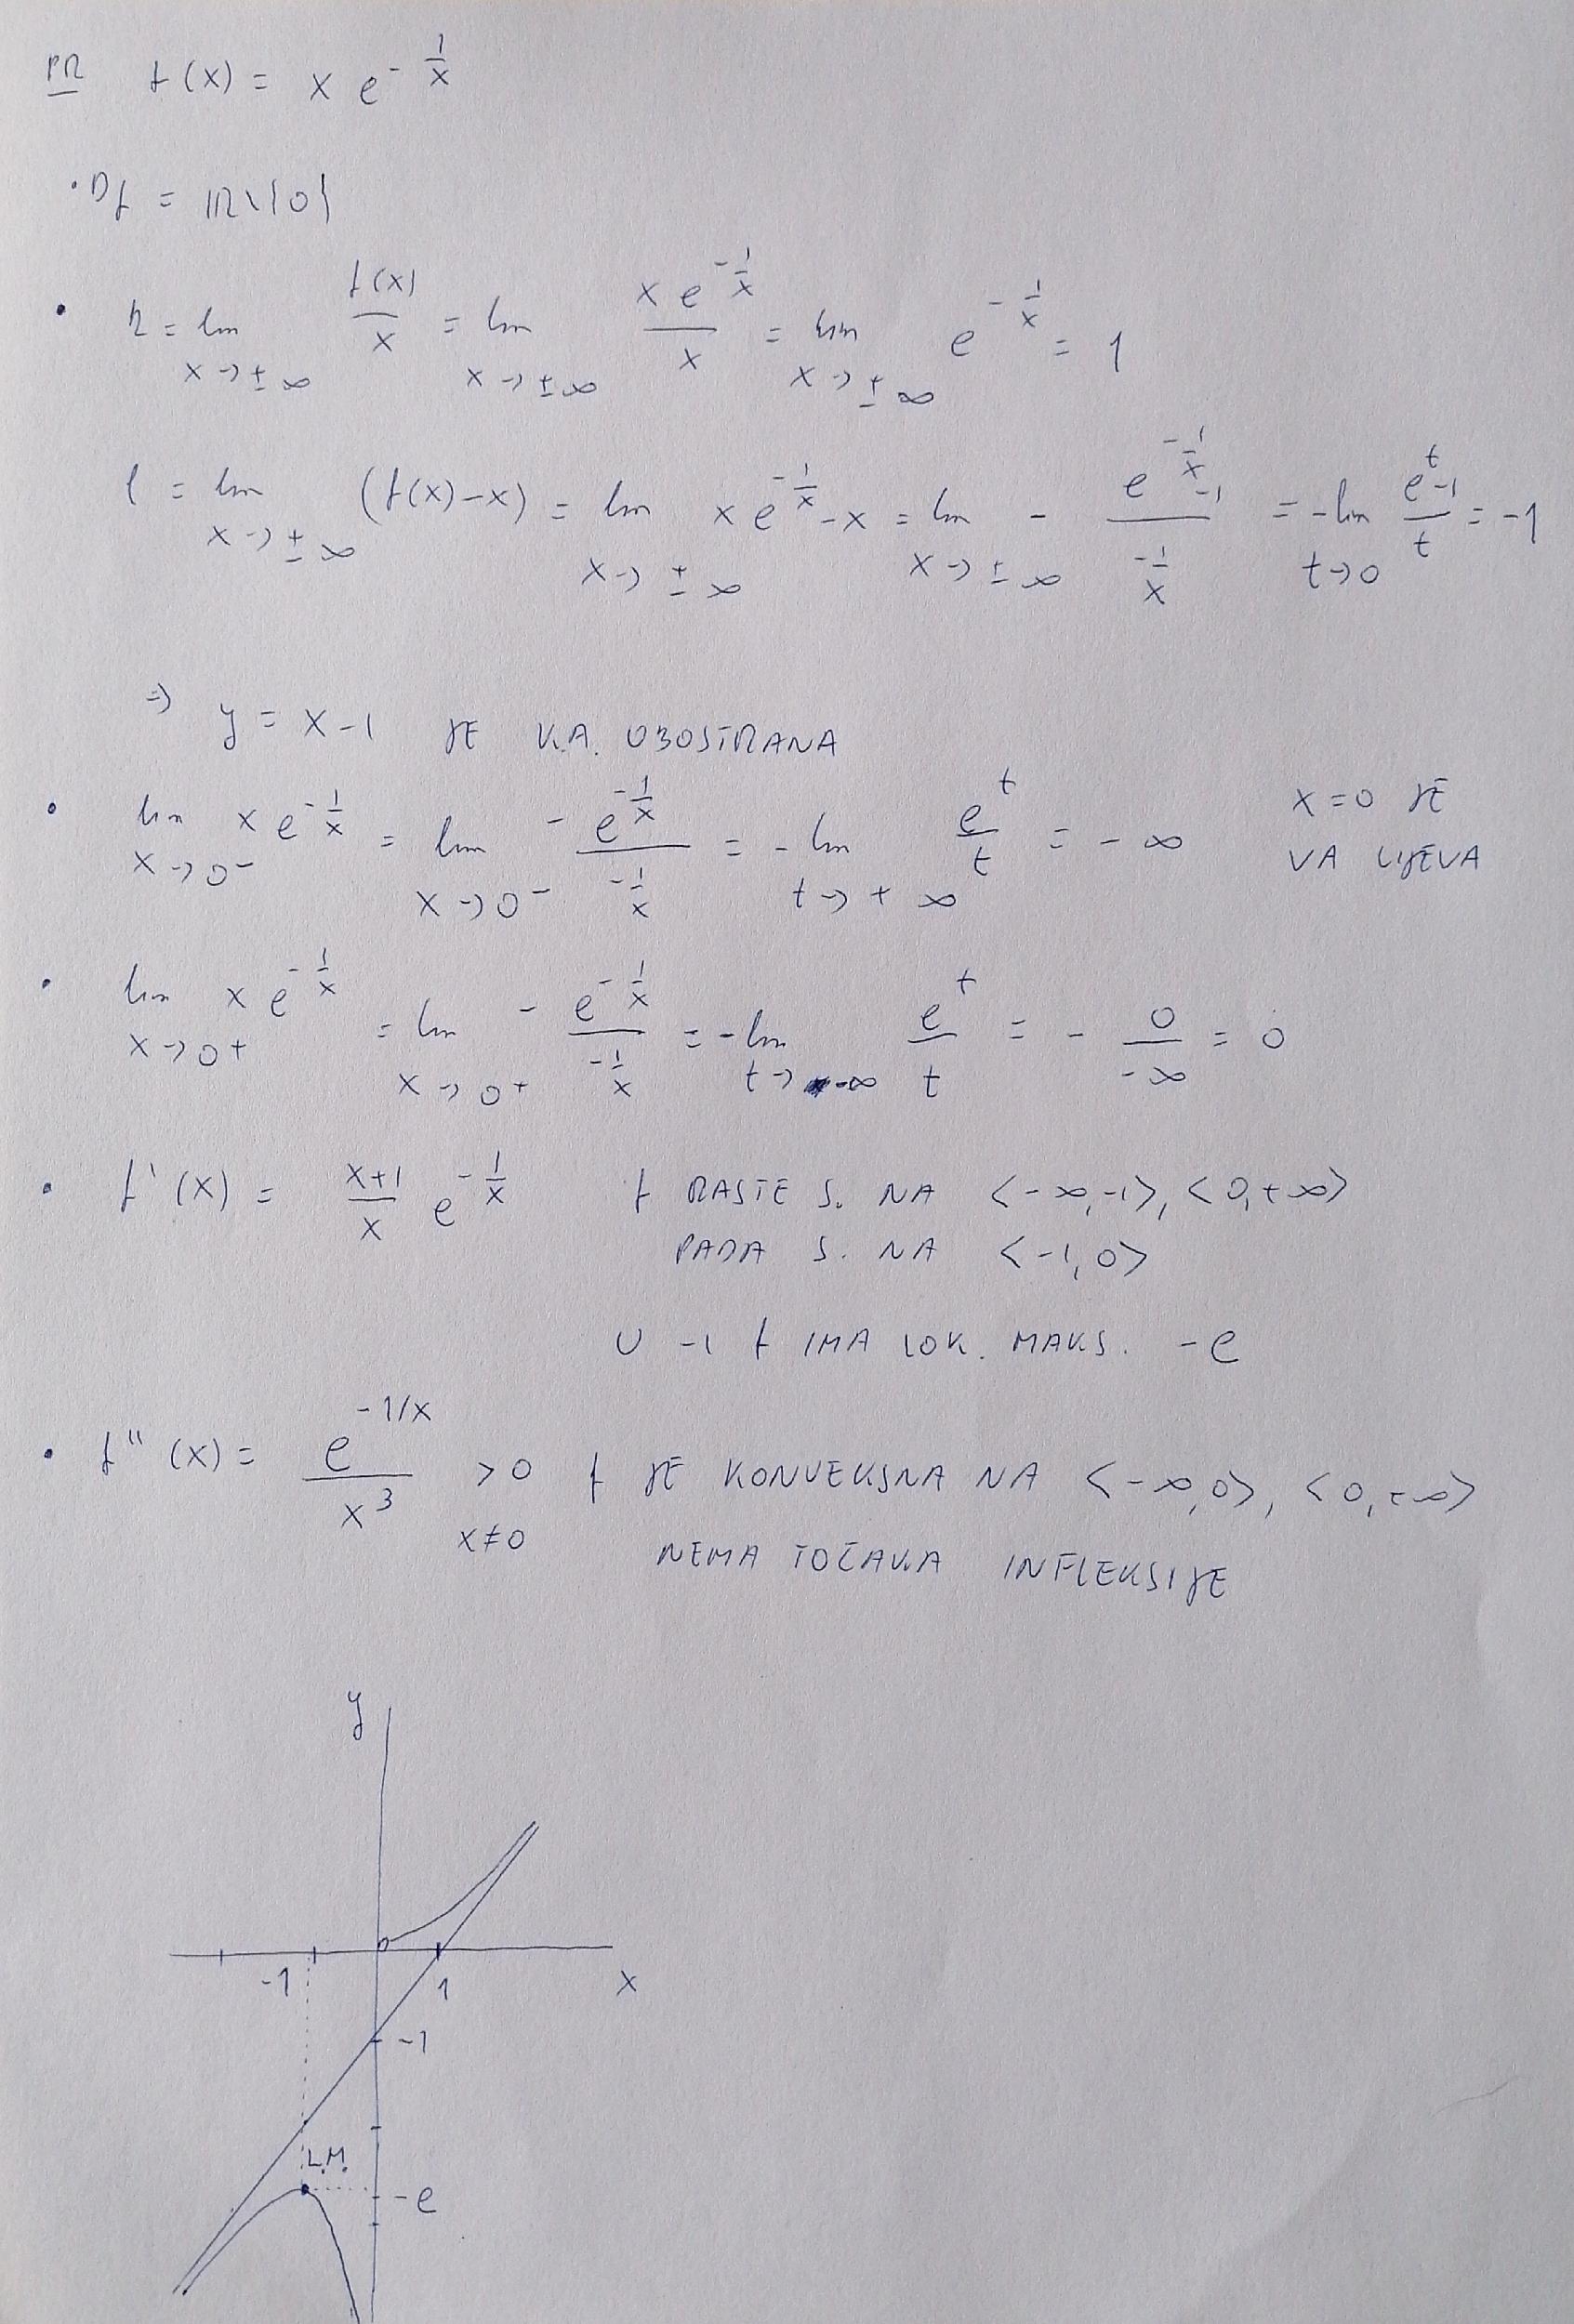 PR f(x) = x e^{-1/x}
• Df = ℝ\{0}
• k = lim_{x→±∞} f(x)/x = lim_{x→±∞} x e^{-1/x}/x = lim_{x→±∞} e^{-1/x} = 1
l = lim_{x→±∞} (f(x)-x) = lim_{x→±∞} x e^{-1/x} - x = lim_{x→±∞} - (e^{-1/x} -1)/(-1/x) = -lim_{t→0} (e^t -1)/t = -1
⇒ y = x-1 JE K.A. OBOSTRANA
• lim_{x→0-} x e^{-1/x} = lim_{x→0-} - e^{-1/x}/(-1/x) = -lim_{t→+∞} e^t/t = -∞ x=0 JE
VA LIJEVA
• lim_{x→0+} x e^{-1/x} = lim_{x→0+} - e^{-1/x}/(-1/x) = -lim_{t→-∞} e^t/t = - 0/-∞ = 0
• f'(x) = (x+1)/x e^{-1/x} f RASTE S. NA <-∞,-1>, <0,+∞>
PADA S. NA <-1,0>
U -1 f IMA LOK. MAKS. -e
• f''(x) = e^{-1/x}/x^3 >0 x≠0 f JE KONVEKSNA NA <-∞,0>, <0,+∞>
NEMA TOČAKA INFLEKSIJE
y
-1 1 x
-1
L.M.
-e